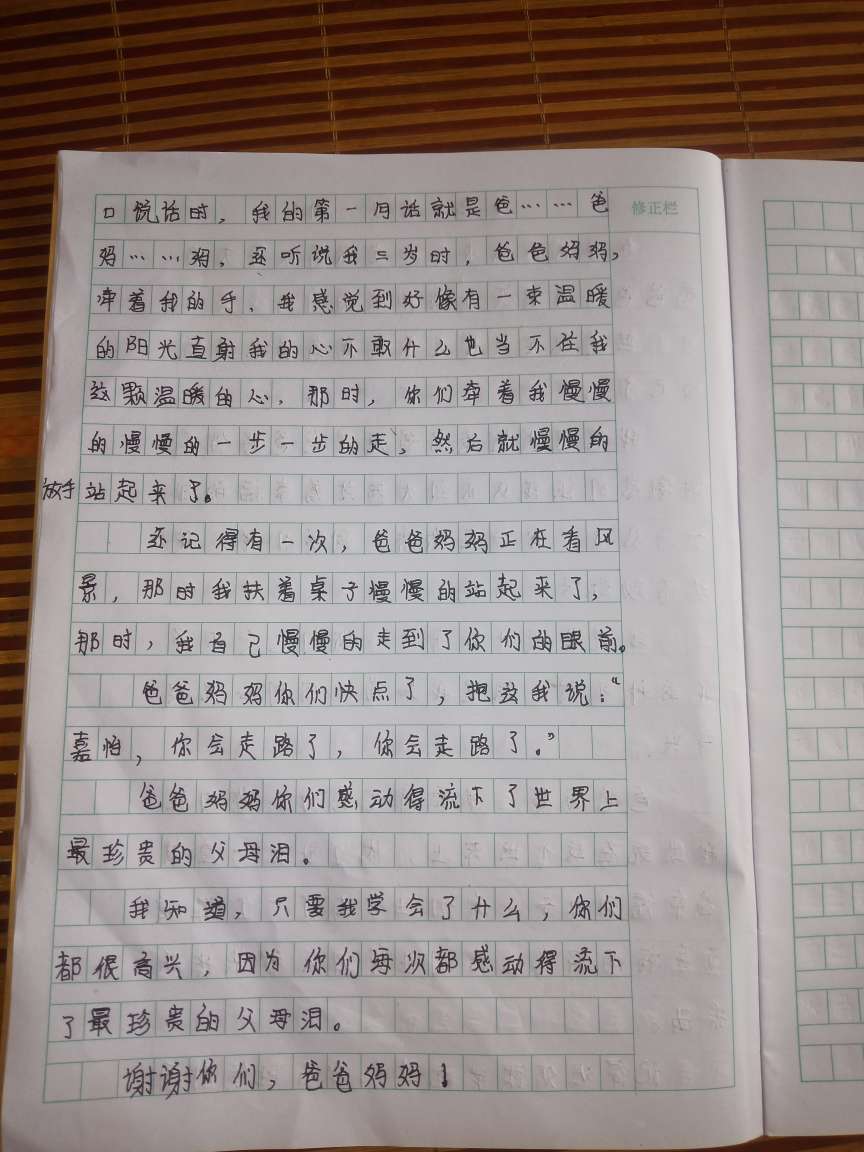 口说话时，我的第一句话就是爸……爸
修正栏
妈……妈，还听说我三岁时，爸爸妈妈，
牵着我的手，我感觉到好像有一束温暖
的阳光直射我的心不敢什么也当不住我
这颗温暖的心，那时，你们牵着我慢慢
的慢慢的一步一步的走，然后就慢慢的
放手站起来了。
还记得有一次，爸爸妈妈正在看风
景，那时我扶着桌子慢慢的站起来了，
那时，我自己慢慢的走到了你们的眼前。
爸爸妈妈你们快点了，抱这我说：“
嘉怡，你会走路了，你会走路了。”
爸爸妈妈你们感动得流下了世界上
最珍贵的父母泪。
我知道，只要我学会了什么，你们
都很高兴，因为你们每次都感动得流下
了最珍贵的父母泪。
谢谢你们，爸爸妈妈！